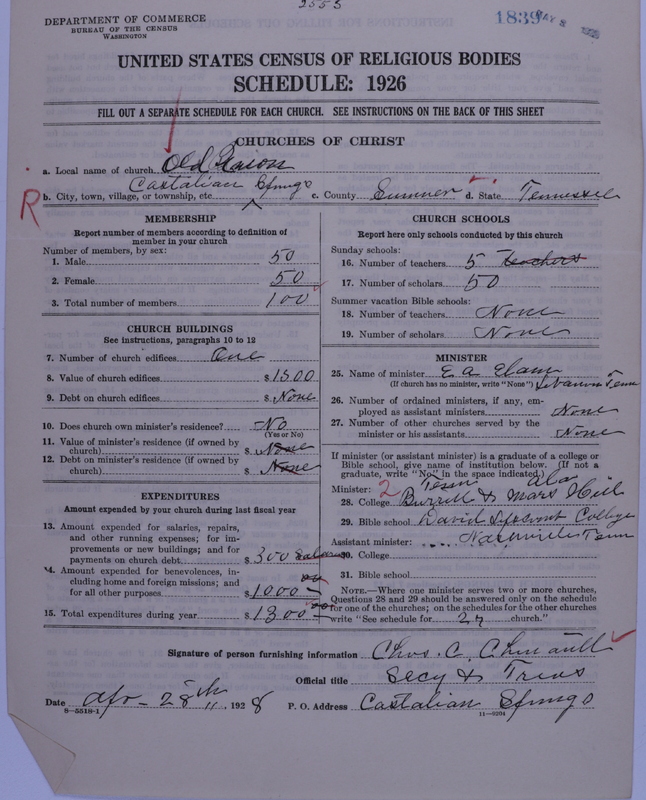 2553
DEPARTMENT OF COMMERCE
BUREAU OF THE CENSUS
WASHINGTON
1839 MAY 8
UNITED STATES CENSUS OF RELIGIOUS BODIES
SCHEDULE: 1926
FILL OUT A SEPARATE SCHEDULE FOR EACH CHURCH. SEE INSTRUCTIONS ON THE BACK OF THIS SHEET
CHURCHES OF CHRIST
a. Local name of church Old Union
R
b. City, town, village, or township, etc Castalian Springs c. County Sumner d. State Tennessee
MEMBERSHIP
Report number of members according to definition of
member in your church
Number of members, by sex:
1. Male 50
2. Female 50
3. Total number of members 100
CHURCH BUILDINGS
See instructions, paragraphs 10 to 12
7. Number of church edifices One
8. Value of church edifices $ 1500
9. Debt on church edifices $ None
10. Does church own minister's residence? No
(Yes or No)
11. Value of minister's residence (if owned by
church) $ None
12. Debt on minister's residence (if owned by
church) $ None
EXPENDITURES
Amount expended by your church during last fiscal year
13. Amount expended for salaries, repairs,
and other running expenses; for im-
provements or new buildings; and for
payments on church debt $ 300
14. Amount expended for benevolences, in-
cluding home and foreign missions; and
for all other purposes $ 1000
15. Total expenditures during year $ 1300
CHURCH SCHOOLS
Report here only schools conducted by this church
Sunday schools:
16. Number of teachers 5 teachers
17. Number of scholars 50
Summer vacation Bible schools:
18. Number of teachers None
19. Number of scholars None
MINISTER
25. Name of minister E. A. Elam
(If church has no minister, write "None") Lebanon Tenn
26. Number of ordained ministers, if any, em-
ployed as assistant ministers None
27. Number of other churches served by the
minister or his assistants None
If minister (or assistant minister) is a graduate of a college or
Bible school, give name of institution below. (If not a
graduate, write "No" in the space indicated.)
Minister: 2 Tenn Ala
28. College Burritt & Mars Hill
29. Bible school David Lipscomb College
Assistant minister: Nashville Tenn
30. College
31. Bible school
NOTE.—Where one minister serves two or more churches,
Questions 28 and 29 should be answered only on the schedule
for one of the churches; on the schedules for the other churches
write "See schedule for church."
Signature of person furnishing information Chas. C. Chenault
Official title Secy & Treas
Date Apr - 28th, 1928 P. O. Address Castalian Springs
8-5518-1
11-9204